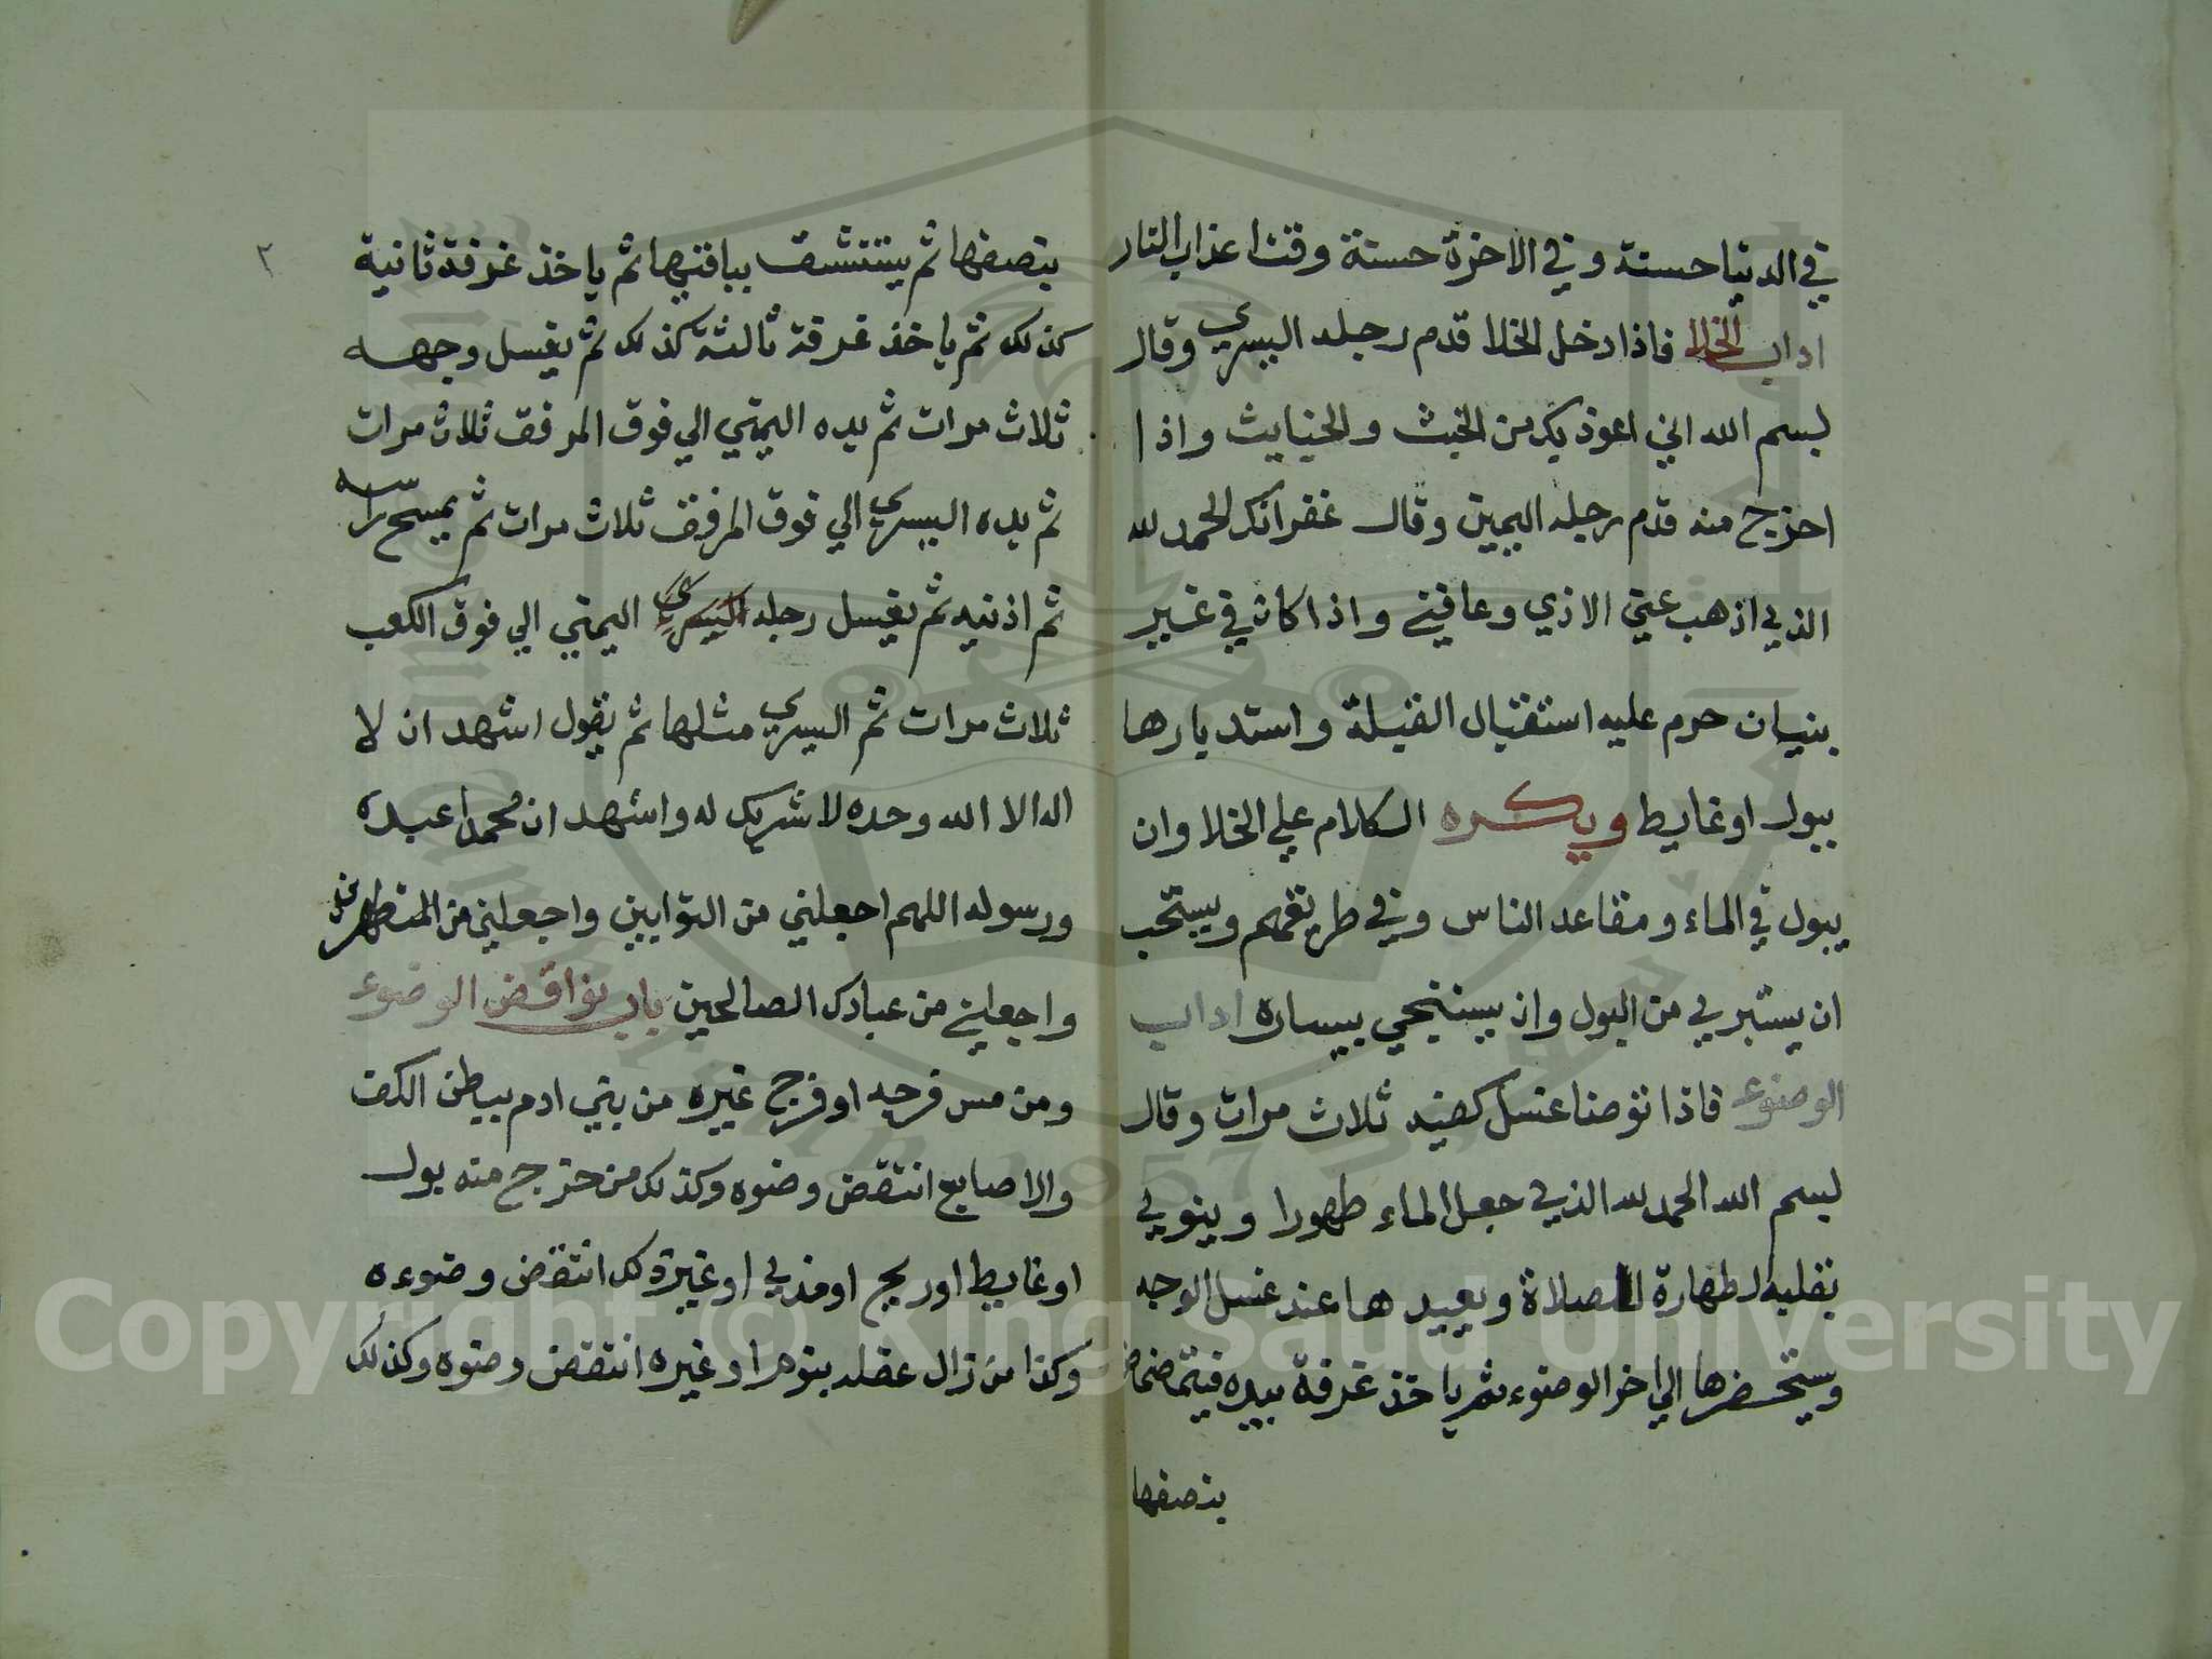 في الدنيا حسنة وفي الاخرة حسنة وقنا عذاب النار
اداب الخلا فاذا دخل الخلا قدم رجله اليسرى وقال
بسم الله اني اعوذ بك من الخبث والخبايث واذا
اخرج منه قدم رجله اليمين وقال غفرانك الحمد لله
الذي اذهب عني الاذي وعافني واذا كان في غير
بنيان حرم عليه استقبال القبلة واستدبارها
ببول او غايط ويكره الكلام علي الخلا وان
يبول في الماء ومقاعد الناس وفي طريقهم ويستحب
ان يستبري من البول وان يستنجي بيساره اداب
الوضوء فاذا توضا غسل كفيه ثلاث مرات وقال
بسم الله الحمد لله الذي جعل الماء طهورا وينوي
بقلبه لطهارة للصلاة ويعيدها عند غسل الوجه
ويستحضرها الي اخر الوضوء ثم ياخذ غرفة بيده فيتمضمض
بنصفها
٢
بنصفها ثم يستنشق بباقيها ثم ياخذ غرفة ثانية
كذلك ثم ياخذ غرفة ثالثة كذلك ثم يغسل وجهه
ثلاث مرات ثم يده اليمني الي فوق المرفق ثلاث مرات
ثم يده اليسرى الي فوق المرفق ثلاث مرات ثم يمسح راسه
ثم اذنيه ثم يغسل رجله اليسرى اليمني الي فوق الكعب
ثلاث مرات ثم اليسرى مثلها ثم يقول اشهد ان لا
اله الا الله وحده لا شريك له واشهد ان محمدا عبده
ورسوله اللهم اجعلني من التوابين واجعلني من المتطهرين
واجعلني من عبادك الصالحين باب نواقض الوضوء
ومن مس فرجه او فرج غيره من بني ادم ببطن الكف
والاصابع انتقض وضوه وكذلك من خرج منه بول
او غايط او ريح او مذي او غيره كل انتقض وضوءه
وكذا من زال عقله بنوم او غيره انتقض وضوه وكذلك
Copyright © King Saud University
1957